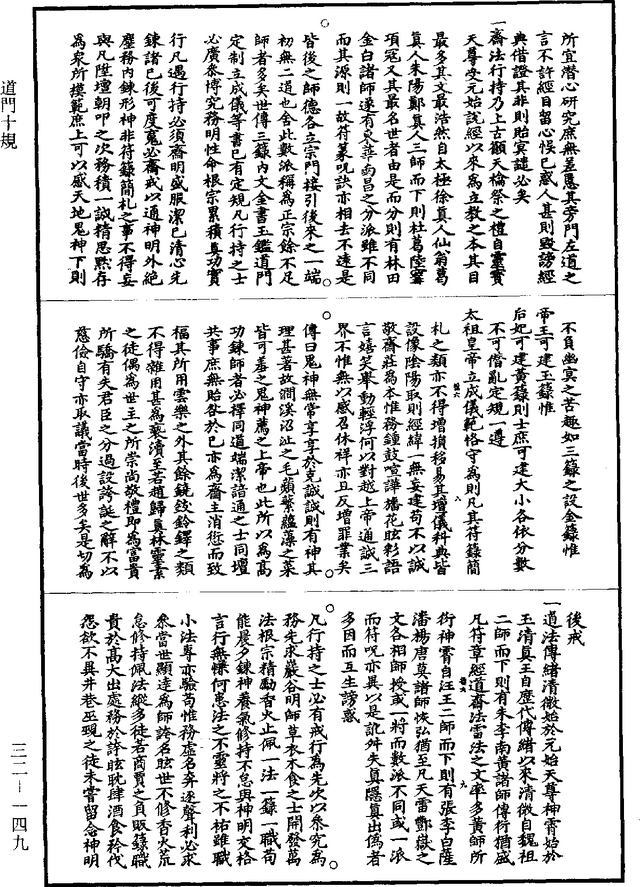 所宜潛心研究庶無差慝其旁門左道之
言不許經目留心悮已惑人甚則毀謗經
典借證其非則貽冥譴必矣
一齋法行持乃上古籲天檜祭之禮自靈寶
天尊受元始說經以來為立教之本其目
最多其文最浩然自太極徐真人仙翁葛
真人朱陽鄭真人三師而下則杜葛陸甯
項寇又其最名世者由是而分則有林田
金白諸師遂有東華南昌之分派雖不同
而其源則一故符篆呪訣亦相去不遠是
皆後之師德各立宗門接引後來之一端
初無二道也舍此數派稱為正宗餘不足
師者多矣世傳三籙內文全書玉鑑道門
定制立成儀等書已有定規凡行持之士
必廣參博究務明性命根宗累積真功實
行凡遇行持必須齋明盛服潔己清心先
鍊諸己後可度魔必齋戒以通神明外絕
塵務內鍊形神非符籙簡札之事不得妄
與凡陞壇朝叩之次務積一誠精思默存
為眾所摸範庶上可以感天地鬼神下則
不負幽冥之苦趣如三籙之設金籙惟
帝王可建玉籙惟
后妃可建黃籙則士庶可建大小各依分數
不可僭亂定規一遵
太祖皇帝立成儀範恪守為則凡其符籙簡
札之類亦不得增損移易其壇儀科典皆
設像陰陽取則經緯一無妄建苟不以誠
敬齋莊為本惟務鍾鼓喧譁旛花眩彩語
言嬉笑舉動輕浮何以對越上帝通誠三
界不惟無以感召休祥亦且反增罪業矣
傳曰鬼神無常享享於克誠誠則有神其
理甚著故澗溪沼沚之毛蘋蘩蘊藻之菜
皆可羞之鬼神薦之上帝也此所以為高
功鍊師者必擇同道端潔諳通之士同壇
共事庶無貽咎於己亦為齋主消愆而致
福其所用雲樂之外其餘鐃鈸鈴鐸之類
不得雜用甚為褻瀆至若趙歸真林靈素
之徒偶為世主之所崇尚敬禮即為富貴
所驕有失君臣之分過設誇誕之辭不以
慈儉自守亦取議當時後世多矣是切為
後戒
一道法傳緒清微始於元始天尊神霄始於
玉清真王自歷代傳緒以來清微自魏祖
二師而下則有朱李南黃諸師傳衍猶盛
凡符章經道齋法雷法之文率多黃師所
衍神霄自汪王二師而下則有張李白薩
潘楊唐莫諸師恢弘猶至凡天雷酆嶽之
文各相師授或一將而數派不同或一派
而符呪亦異以是訛舛失真隱真出偽者
多因而互生謗惑
凡行持之士必有戒行為先次以參究為
務先求巖谷明師草衣木食之士開發萬
法根宗精勵香火止佩一法一籙一職苟
能晨夕鍊神養氣修持不怠與神明交格
言行無慊何患法之不靈將之不祐雖職
小法專亦驗苟惟務虛名奔逐聲利必求
參當世顯達為師誇名眩世不修香火荒
怠修持佩法縱多徒若商賈之負販籙職
貴於高大出處務於誇眩耽肆酒食矜伐
怨欲不異井巷巫覡之徒未嘗留念神明
道門十規
三二—一四九